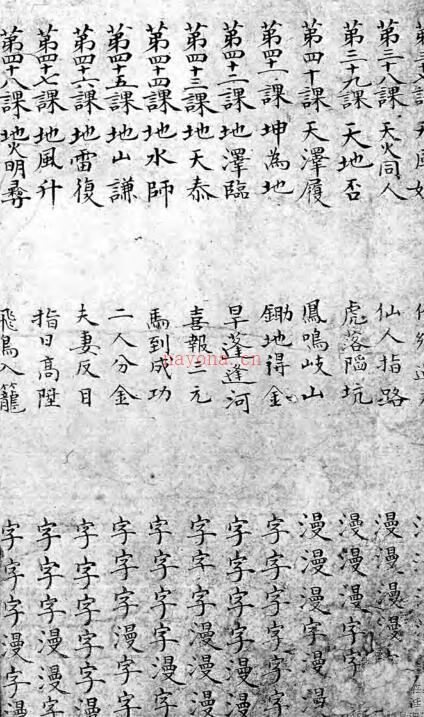 第三十八課 天火同人 仙人指路 漫漫漫漫
第三十九課 天地否 虎落陷坑 漫漫漫字字
第四十課 天澤履 鳳鳴岐山 漫漫漫字漫
第四十一課 坤為地 鋤地得金 字字字字字
第四十二課 地澤臨 旱蓬逢河 字字字字漫
第四十三課 地天泰 喜報三元 字字字漫漫
第四十四課 地水師 馬到成功 字字字字漫
第四十五課 地山謙 二人分金 字字字漫字
第四十六課 地雷復 夫妻反目 字字字字字
第四十七課 地風升 指日高陞 字字字漫漫
第四十八課 地火明彛 飛鳥入籠 字字字漫字
hayona.cn